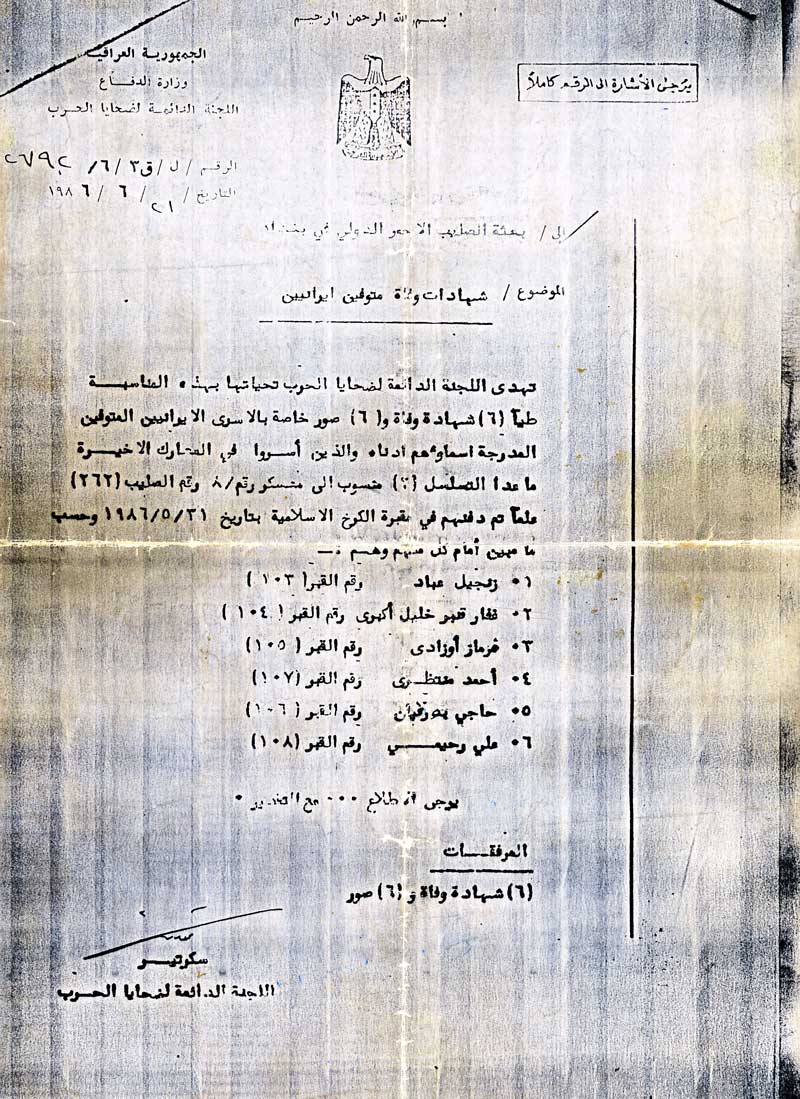 بسم الله الرحمن الرحيم
الجمهورية العراقية
وزارة الدفاع
اللجنة الدائمة لضحايا الحرب
يرجى الأشارة الى الرقم كاملاً
الرقم / ل / ق٣ / ٦ / ٢٦٧٩٢
التاريخ / ٢١ / ٦ / ١٩٨٦
الى / بعثة الصليب الاحمر الدولي في بغداد
الموضوع / شهادات وفاة متوفين ايرانيين
تهدى اللجنة الدائمة لضحايا الحرب تحياتها بهذه المناسبة
طياً (٦) شهادة وفاة و (٦) صور خاصة بالاسرى الايرانيين المتوفين
المدرجة اسماؤهم ادناه والذين أسروا في المعارك الاخيرة
ما عدا التسلسل منسوب الى معسكر رقم / ٨ رقم الصليب (٢٦٢)
علماً تم دفنهم في مقبرة الكرخ الاسلامية بتاريخ ٣١/٥/١٩٨٦ وحسب
ما مبين أمام كل منهم وهم :-
١٠ عباد رقم القبر (١٠٣)
٢٠ قنبر خليل أكبرى رقم القبر (١٠٤)
٣٠ فرماز أوزادى رقم القبر (١٠٥)
٤٠ أحمد منتظرى رقم القبر (١٠٧)
٥٠ حاجي رقم القبر (١٠٦)
٦٠ علي رحيمي رقم القبر (١٠٨)
يرجى الاطلاع ٠٠٠ مع التقدير ٠
المرفقات
(٦) شهادة وفاة و (٦) صور
سكرتير
اللجنة الدائمة لضحايا الحرب